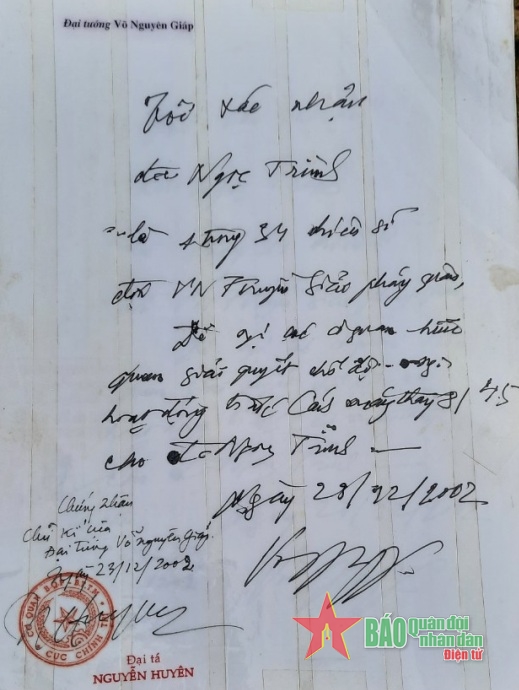 Đại tướng Võ Nguyên Giáp
Tôi xác nhận
đ/c Ngọc Trình
là 1 trong 34 chiến sĩ
đội VN Tuyên truyền Giải phóng quân,
Đề nghị các cơ quan hữu
quan giải quyết chế độ
hoạt động trước Cách mạng tháng 8/45
cho đ/c Ngọc Trình
Ngày 23/12/2002
Chứng nhận
Chữ kí của
Đại tướng Võ Nguyên Giáp
Ngày 23/12/2002
CƠ QUAN BỘ
CỤC CHÍNH
Đại tá
NGUYỄN HUYÊN
BÁO quân đội
nhân dân
Điện tử